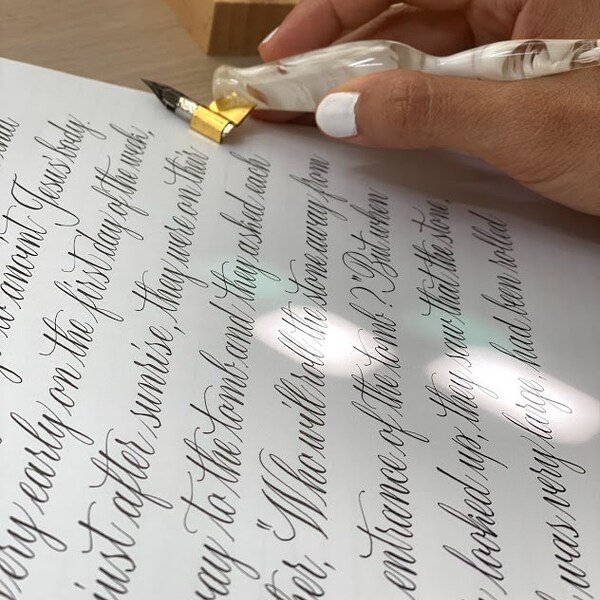 to anoint Jesus' body.
early on the first day of the week,
just after sunrise, they were on their
to the tomb and they asked each
"Who will roll the stone away from
entrance of the tomb?" But when
looked up, they saw that the stone,
was very large, had been rolled